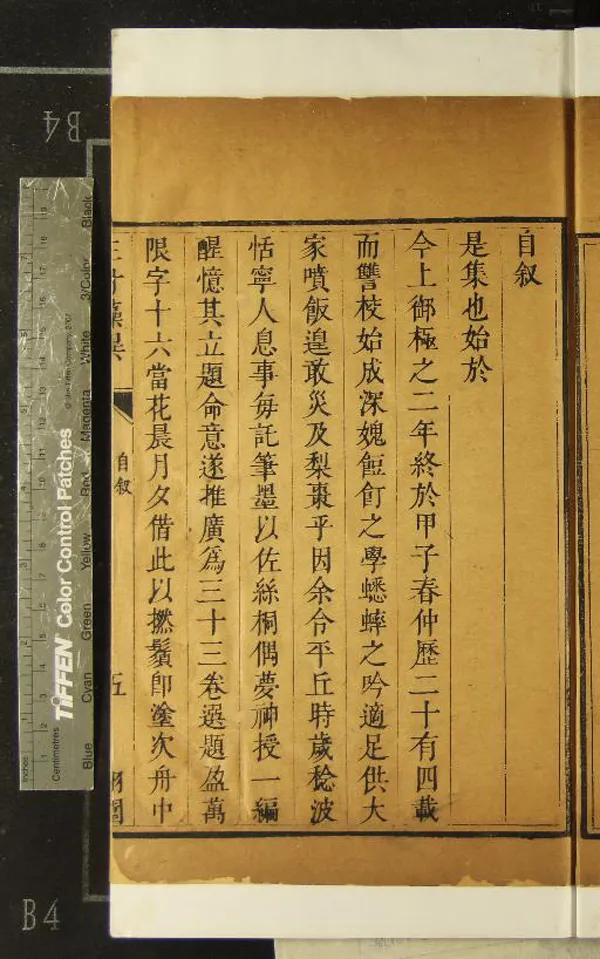 自叙
是集也始於
今上御極之二年終於甲子春仲歷二十有四載
而讐校始成深媿餖飣之學蟋蟀之吟適足供大
家噴飯遑敢災及梨棗乎因余令平丘時歲稔波
恬寧人息事每託筆墨以佐絲桐偶夢神授一編
醒憶其立題命意遂推廣為三十三卷選題盈萬
限字十六當花晨月夕借此以撚鬚卽塗次舟中
自叙
五
B4
B4
TIFFEN Color Control Patches
© The Tiffen Company, 2007
Inches
Centimetres
Blue
Cyan
Green
Yellow
Red
Magenta
White
3/Color
Black